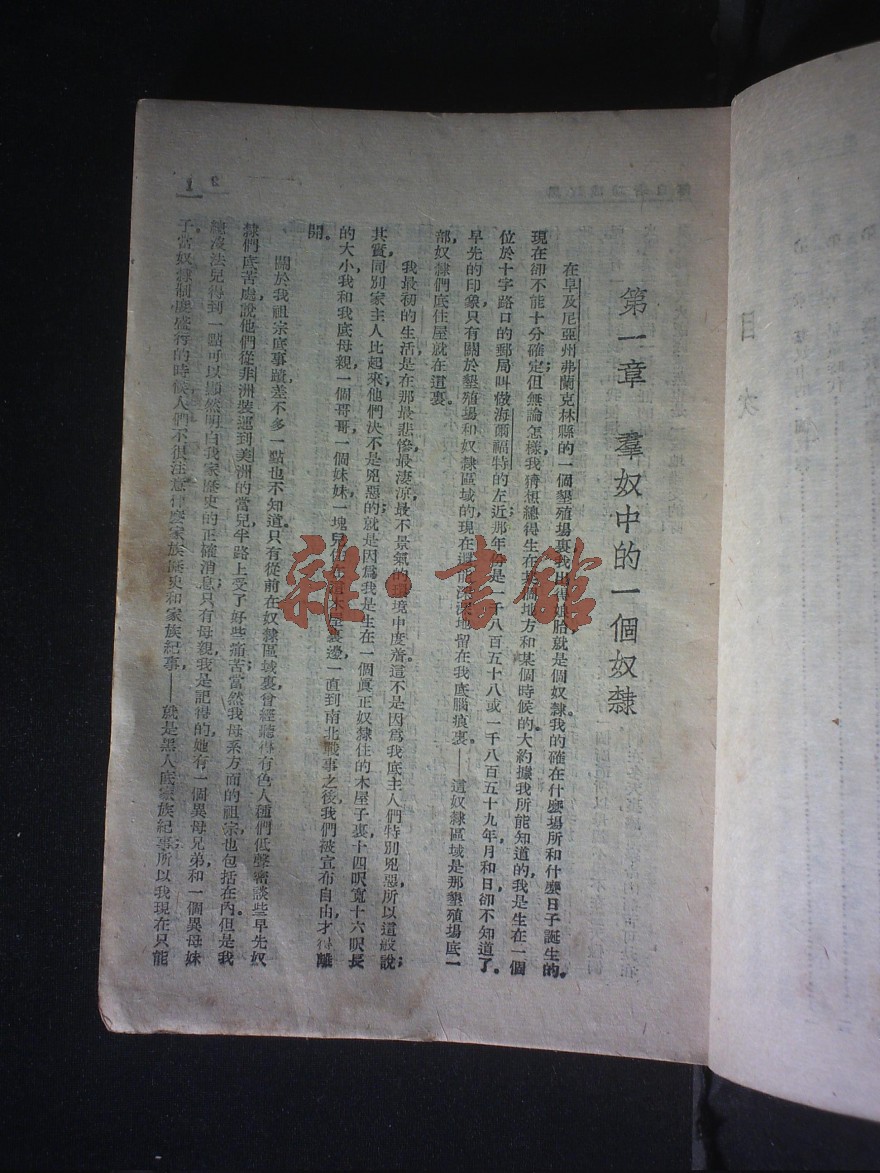 第一章　羣奴中的一個奴隸
在卑及尼亞州弗蘭克林縣的一個墾殖場裏我出得娘胎就是個奴隸我的確在什麼場所和什麼日子誕生的，
現在卻不能十分確定但無論怎樣我猜想總得生在某個地方和某個時候的大約據我所能知道的我是生在一個
位於十字路口的郵局叫做海爾福特的左近那年份是一千八百五十八或一千八百五十九年月和日卻不知道了。
早先的印象只有關於墾殖場和奴隸區域的現在還能深深地留在我底腦痕裏。——這奴隸區域是那墾殖場底一
部，奴隸們底住屋就在這裏。
我最初的生活是在那最悲慘最淒涼最不景氣的環境中度着這不是因爲我底主人們特別兇惡所以這般說；
其實同別家主人比起來他們決不是兇惡的就是因爲我是生在一個眞正奴隸住的木屋子裏十四呎寬十六呎長
的大小我和我底母親，一個哥哥，一個妹妹一塊兒住在這木屋裏邊一直到南北戰事之後我們被宣布自由才得離
開。
關於我祖宗底事蹟差不多一點也不知道。只有從前在奴隸區域裏曾經聽得有色人種們低聲密談些早先奴
隸們底苦處說他們從非洲裝運到美洲的當兒半路上受了好些痛苦當然我母系方面的祖宗也包括在內但是我
總沒法兒得到一點可以顯然明白我家歷史的正確消息只有母親我是記得的她有一個異母兄弟和一個異母妹
子當奴隸制度盛行的時候人們不很注意什麼家族歷史和家族紀事，——就是黑人底家族紀事所以我現在只能
1
目次
雜·書館